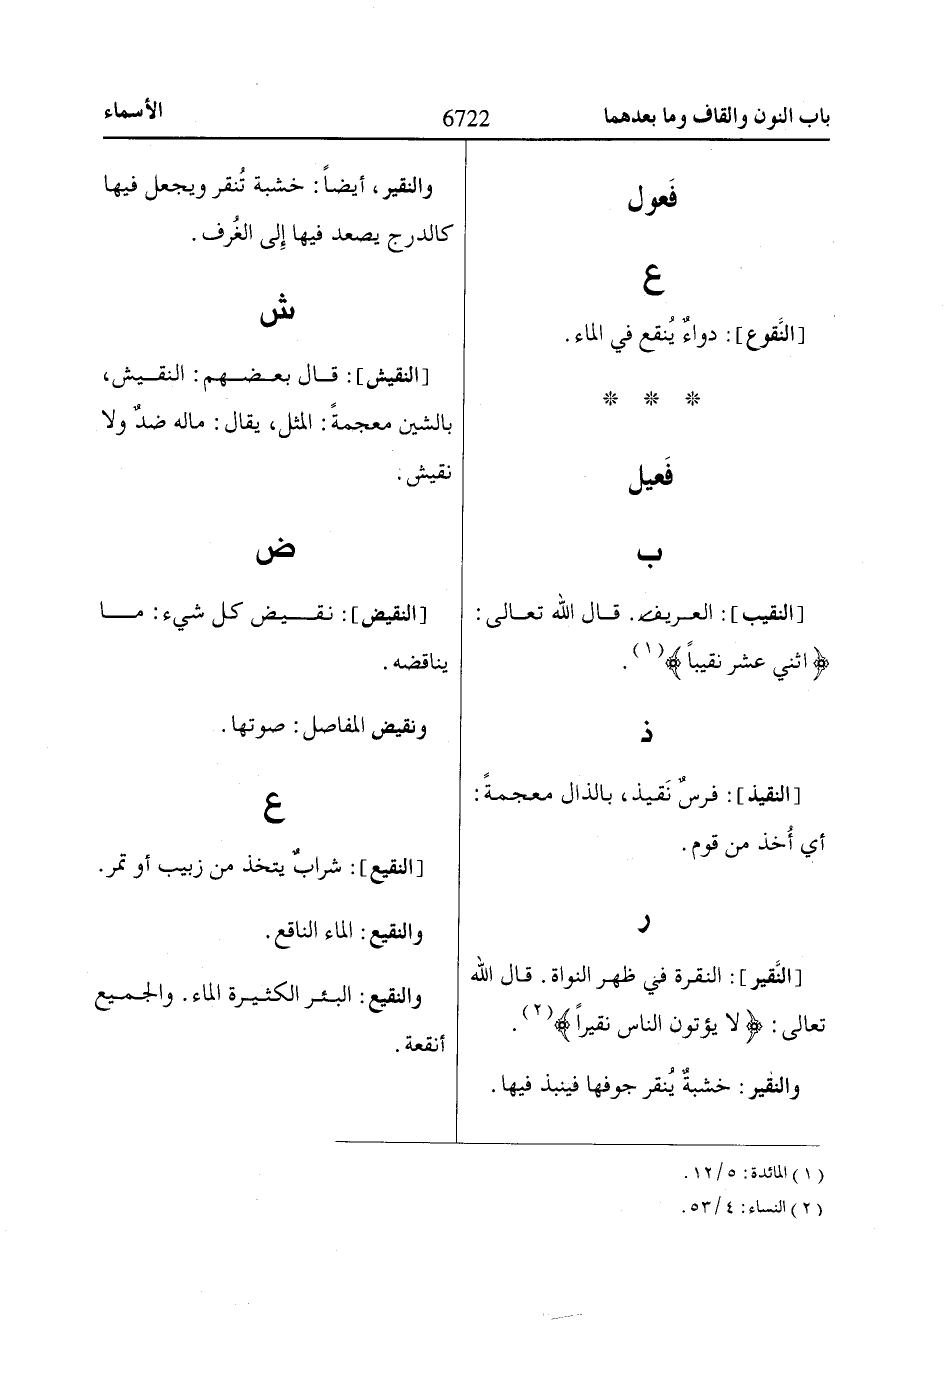 باب النون والقاف وما بعدهما
6722
الأسماء
فَعول
ع
[النَّقوع]: دواءٌ يُنقع في الماء.
* * *
فَعيل
ب
[النقيب]: العريف. قال الله تعالى:
﴿اثني عشر نقيباً﴾(١).
ذ
[النقيذ]: فرسٌ نَقيذ، بالذال معجمةً:
أي أُخذ من قوم.
ر
[النَّقير]: النقرة في ظهر النواة. قال الله
تعالى: ﴿لا يؤتون الناس نقيراً﴾(٢).
والنقير: خشبةٌ يُنقر جوفها فينبذ فيها.
والنقير، أيضاً: خشبة تُنقر ويجعل فيها
كالدرج يصعد فيها إِلى الغُرف.
ش
[النقيش]: قال بعضهم: النقيش،
بالشين معجمةً: المثل، يقال: ماله ضدٌ ولا
نقيش.
ض
[النقيض]: نقيض كل شيء: ما
يناقضه.
ونقيض المفاصل: صوتها.
ع
[النقيع]: شرابٌ يتخذ من زبيب أو تمر.
والنقيع: الماء الناقع.
والنقيع: البئر الكثيرة الماء. والجميع
أنقعة.
(١) المائدة: ٥/١٢.
(٢) النساء: ٤/٥٣.